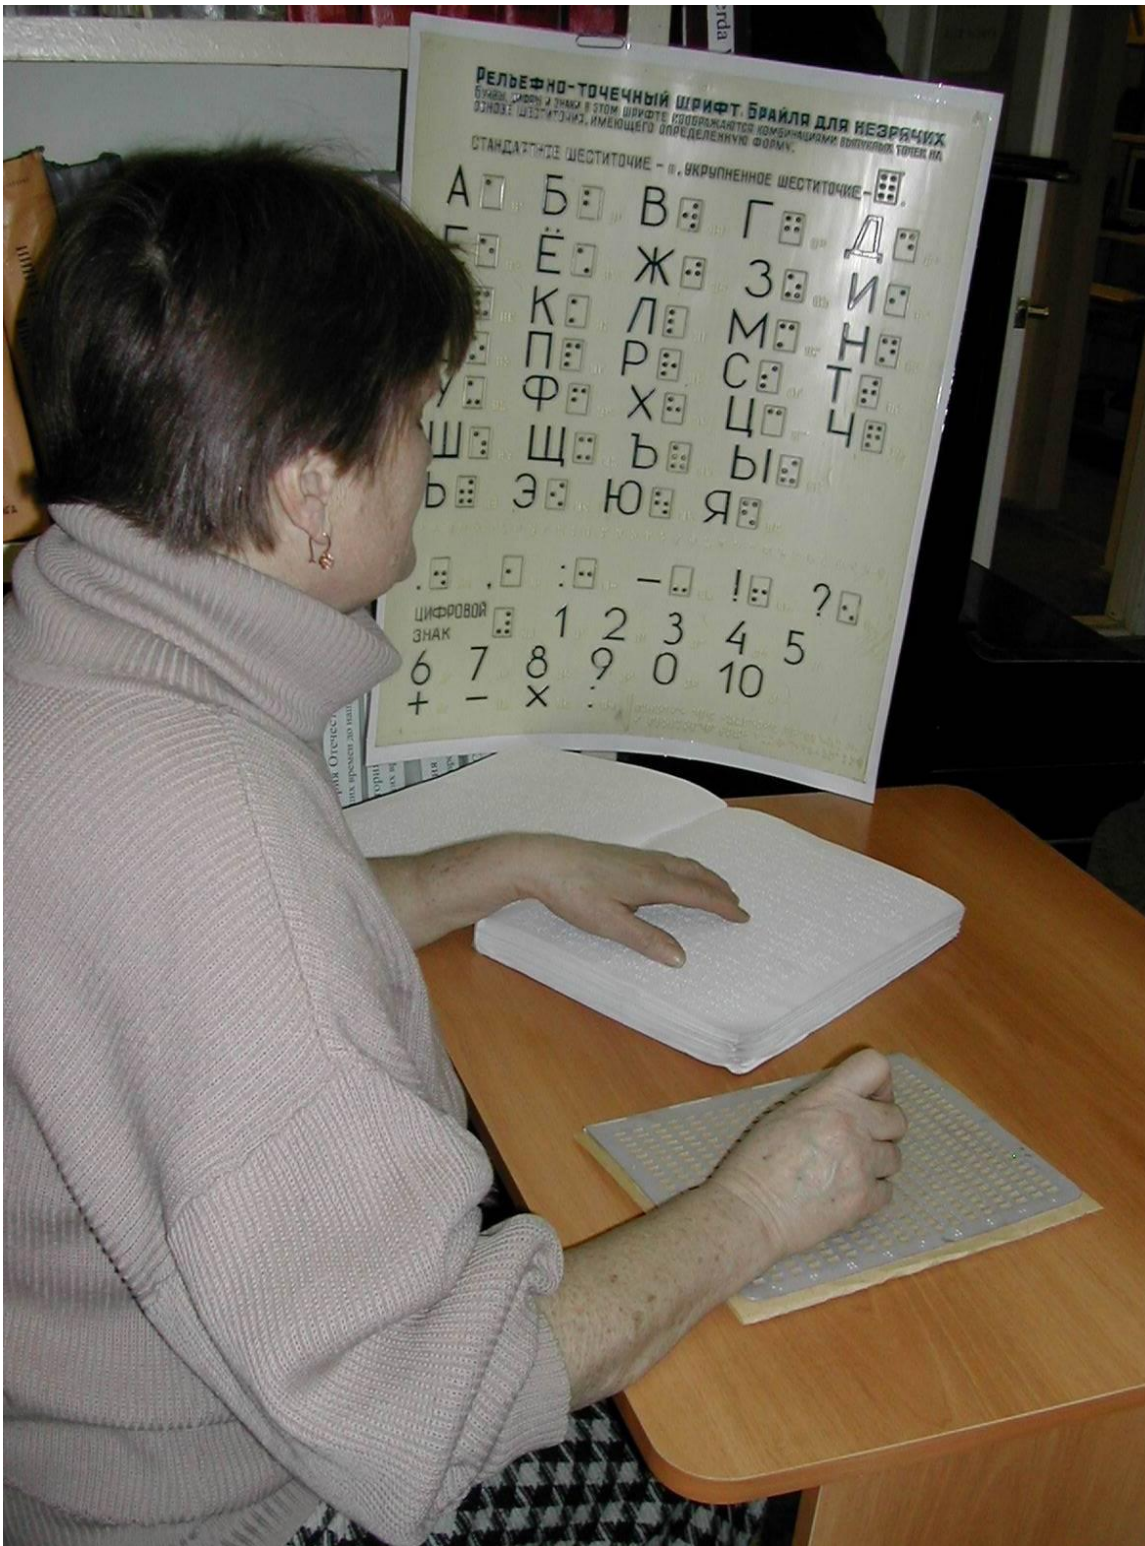 erda
РЕЛЬЕФНО-ТОЧЕЧНЫЙ ШРИФТ БРАЙЛЯ ДЛЯ НЕЗРЯЧИХ
БУКВЫ, ЦИФРЫ И ЗНАКИ В ЭТОМ ШРИФТЕ ИЗОБРАЖАЮТСЯ КОМБИНАЦИЯМИ ВЫПУКЛЫХ ТОЧЕК НА
ОСНОВЕ ШЕСТИТОЧИЯ, ИМЕЮЩЕГО ОПРЕДЕЛЕННУЮ ФОРМУ.
СТАНДАРТНОЕ ШЕСТИТОЧИЕ - ⠿, УКРУПНЕННОЕ ШЕСТИТОЧИЕ - ⠿.
А Б В Г Д
Ё Ж З И
К Л М Н
П Р С Т
У Ф Х Ц Ч
Ш Щ Ъ Ы
Ь Э Ю Я
. , : – ! ?
ЦИФРОВОЙ
ЗНАК 1 2 3 4 5
6 7 8 9 0 10
+ – × :
рия Отечес
их времен до на